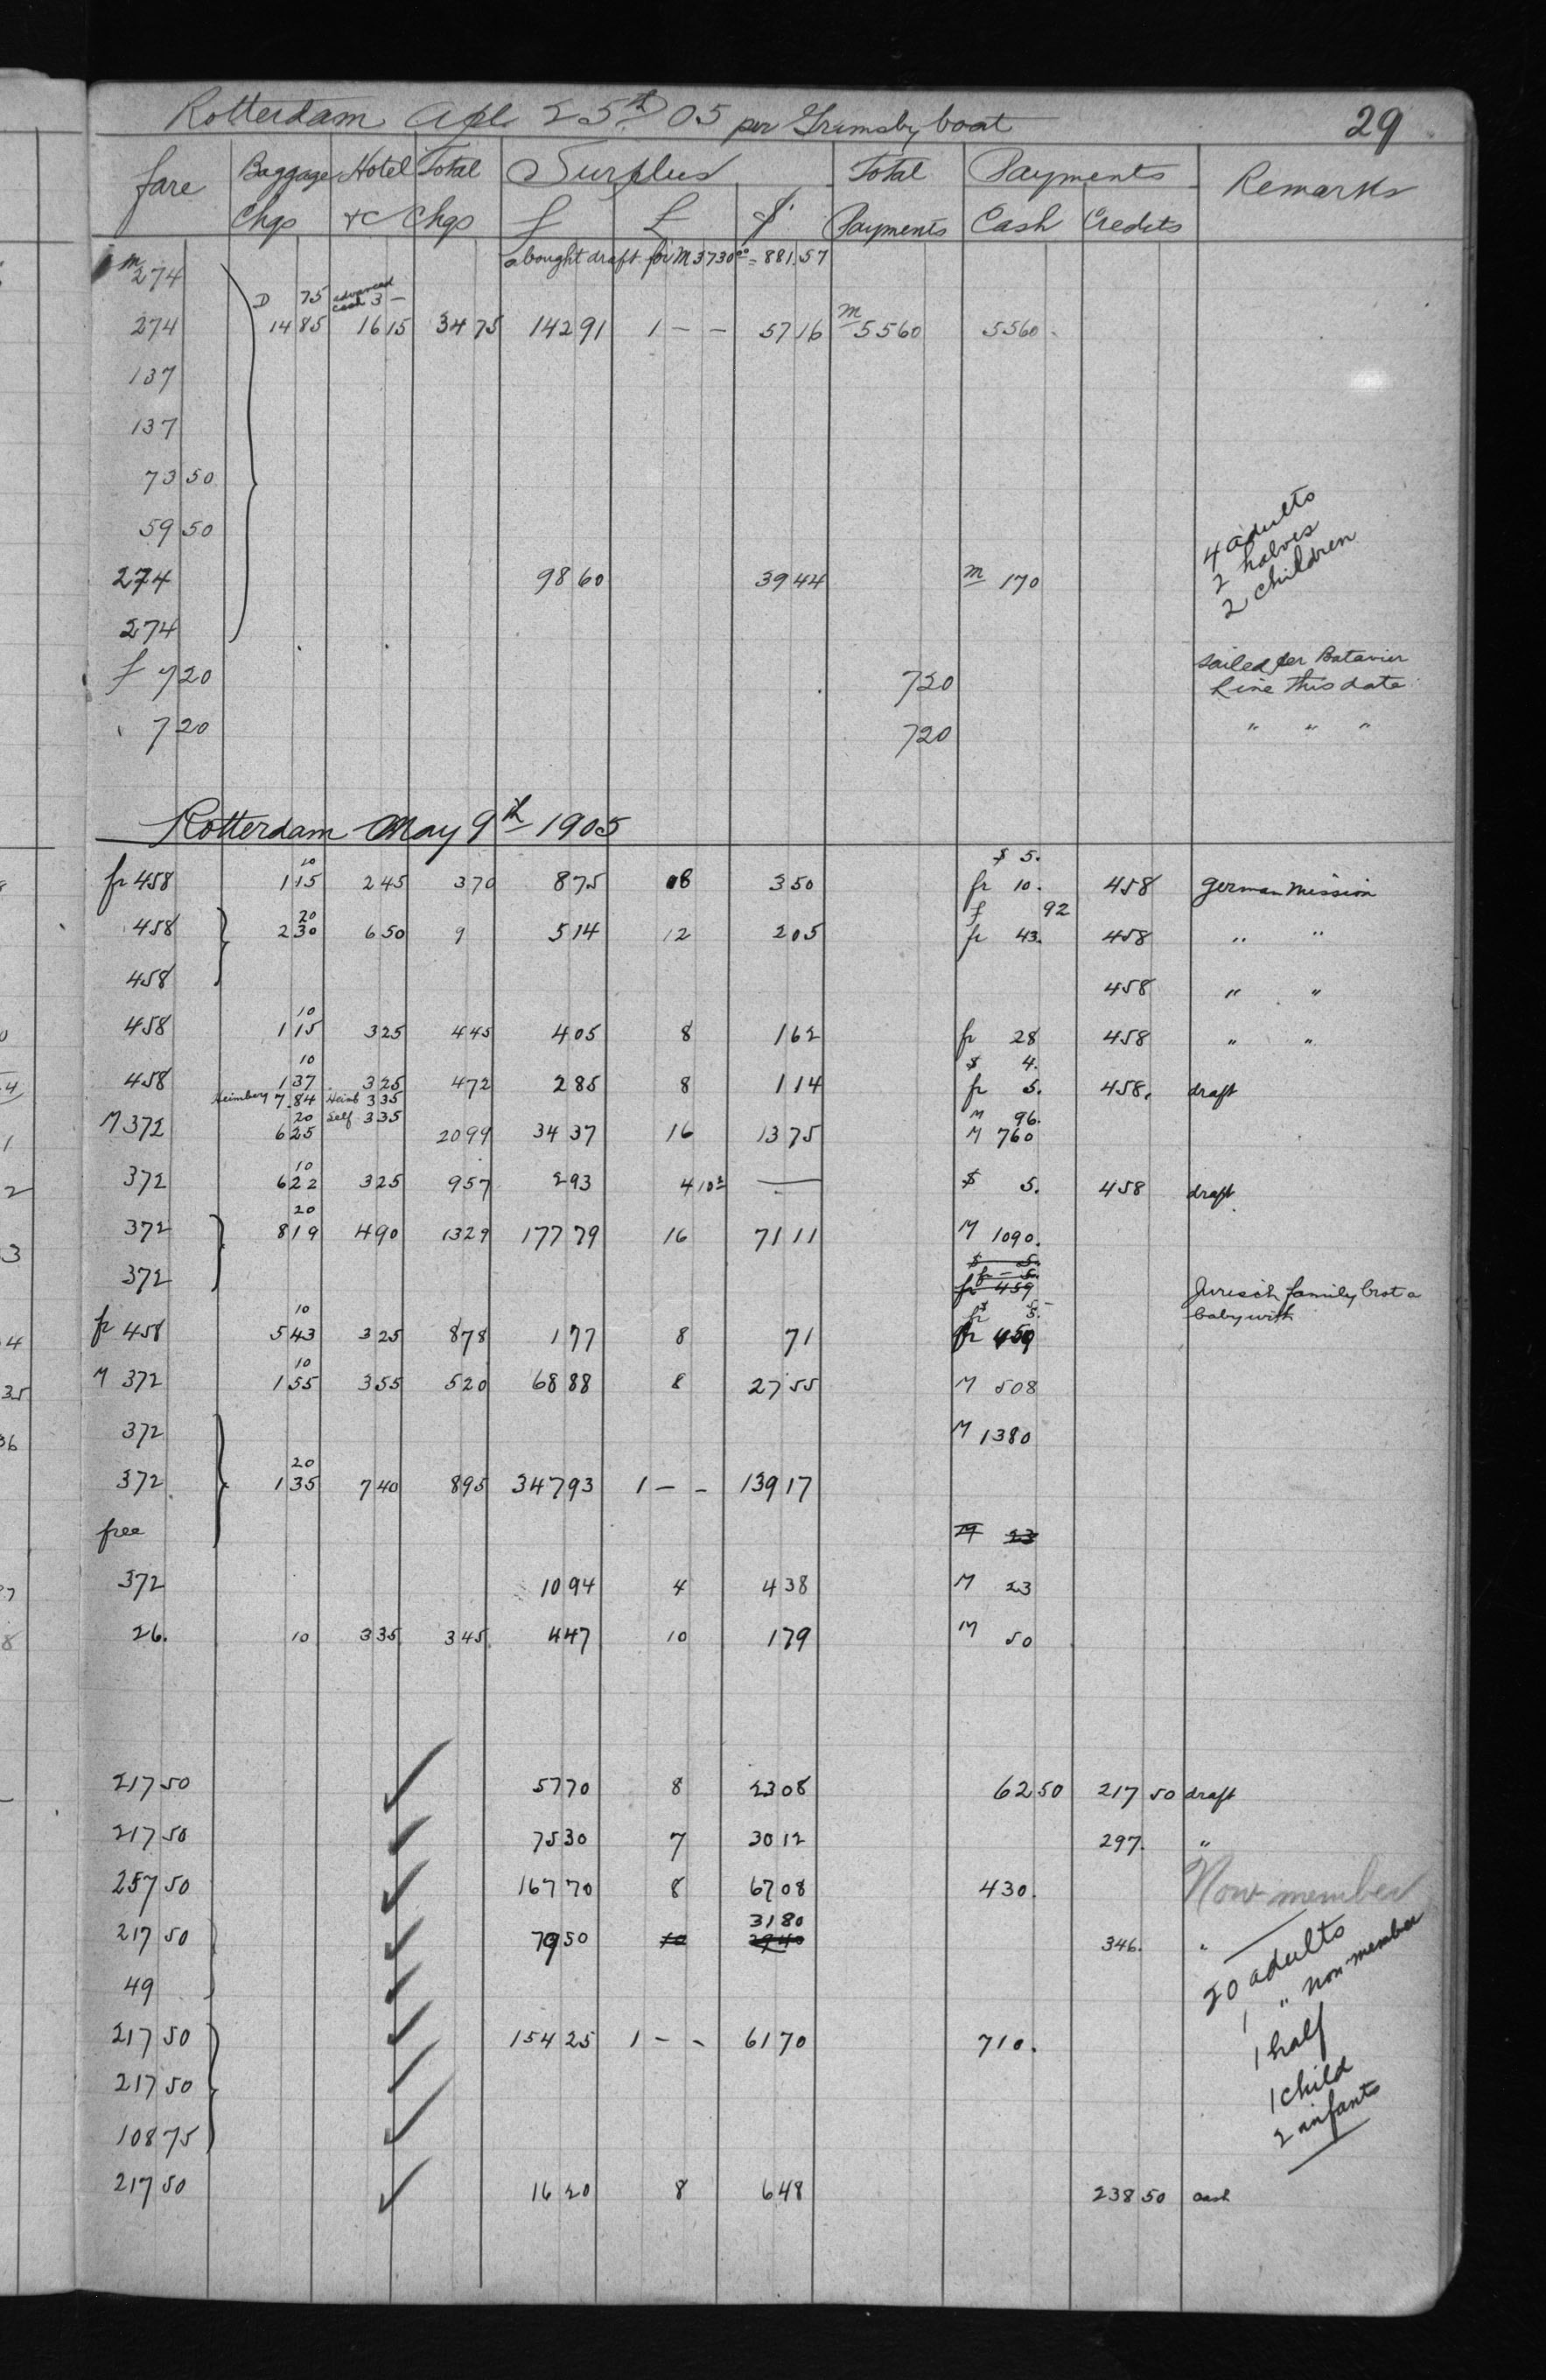 Rotterdam Apl 25th 05 per Grimsby boat 29
fare Baggage Chgs Hotel &c Total Chgs Surplus f £ $ Total Payments Payments Cash Credits Remarks
m 274 bought draft for M 3730 00 = 881.57
D 75 advanced cash 3 —
274 14 85 16 15 34 75 142 91 1 – – 57 16 M 5560 5560
137
137
73 50
59 50
4 adults
2 halves
2 children
274 98 60 39 44 m 170
274
f 7 20 7 20 sailed per Batavier Line this date
7 20 7 20 " " "
Rotterdam May 9th 1905
$ 5.
10
fr 458 1 15 2 45 3 70 8 75 8 3 50 fr 10. 458 German Mission
f 92
20
458 2 30 6 50 9 5 14 12 2 05 fr 43. 458 " "
458 458 " "
10
458 1 15 3 25 4 45 4 05 8 1 62 fr 28 458 " "
10 $ 4.
458 1 37 3 25 4 72 2 85 8 1 14 fr 5. 458. draft
Heimberg 7.84 Heimb 3 35
20 Self 3 35 M 96.
M 372 6 25 20 99 34 37 16 13 75 M 760
10
372 6 22 3 25 9 57 2 93 4 10 — $ 5. 458 draft
20
372 8 19 4 90 13 29 177 79 16 71 11 M 1090.
$ 5.
fr – 5.
372 fr 459 Jurisch family brot a baby with
10 $ 5 –
fr 458 5 43 3 25 8 78 1 77 8 71 fr 459
10
M 372 1 55 3 55 5 20 68 88 8 27 55 M 508
372 M 1380
20
372 1 35 7 40 8 95 347 93 1 – – 139 17
free M 23
372 10 94 4 4 38 M 23
26. 10 3 35 3 45 4 47 10 1 79 M 50
217 50 ✓ 57 70 8 23 08 62 50 217 50 draft
217 50 ✓ 75 30 7 30 12 297. "
257 50 ✓ 167 70 8 67 08 430. Non-member
31 80
217 50 ✓ 79 50 10 29 40 346. "
49 ✓
217 50 ✓ 154 25 1 – – 61 70 710.
217 50 ✓
108 75 ✓
20 adults
1 " non-member
1 half
1 child
2 infants
217 50 ✓ 16 20 8 6 48 238 50 cash